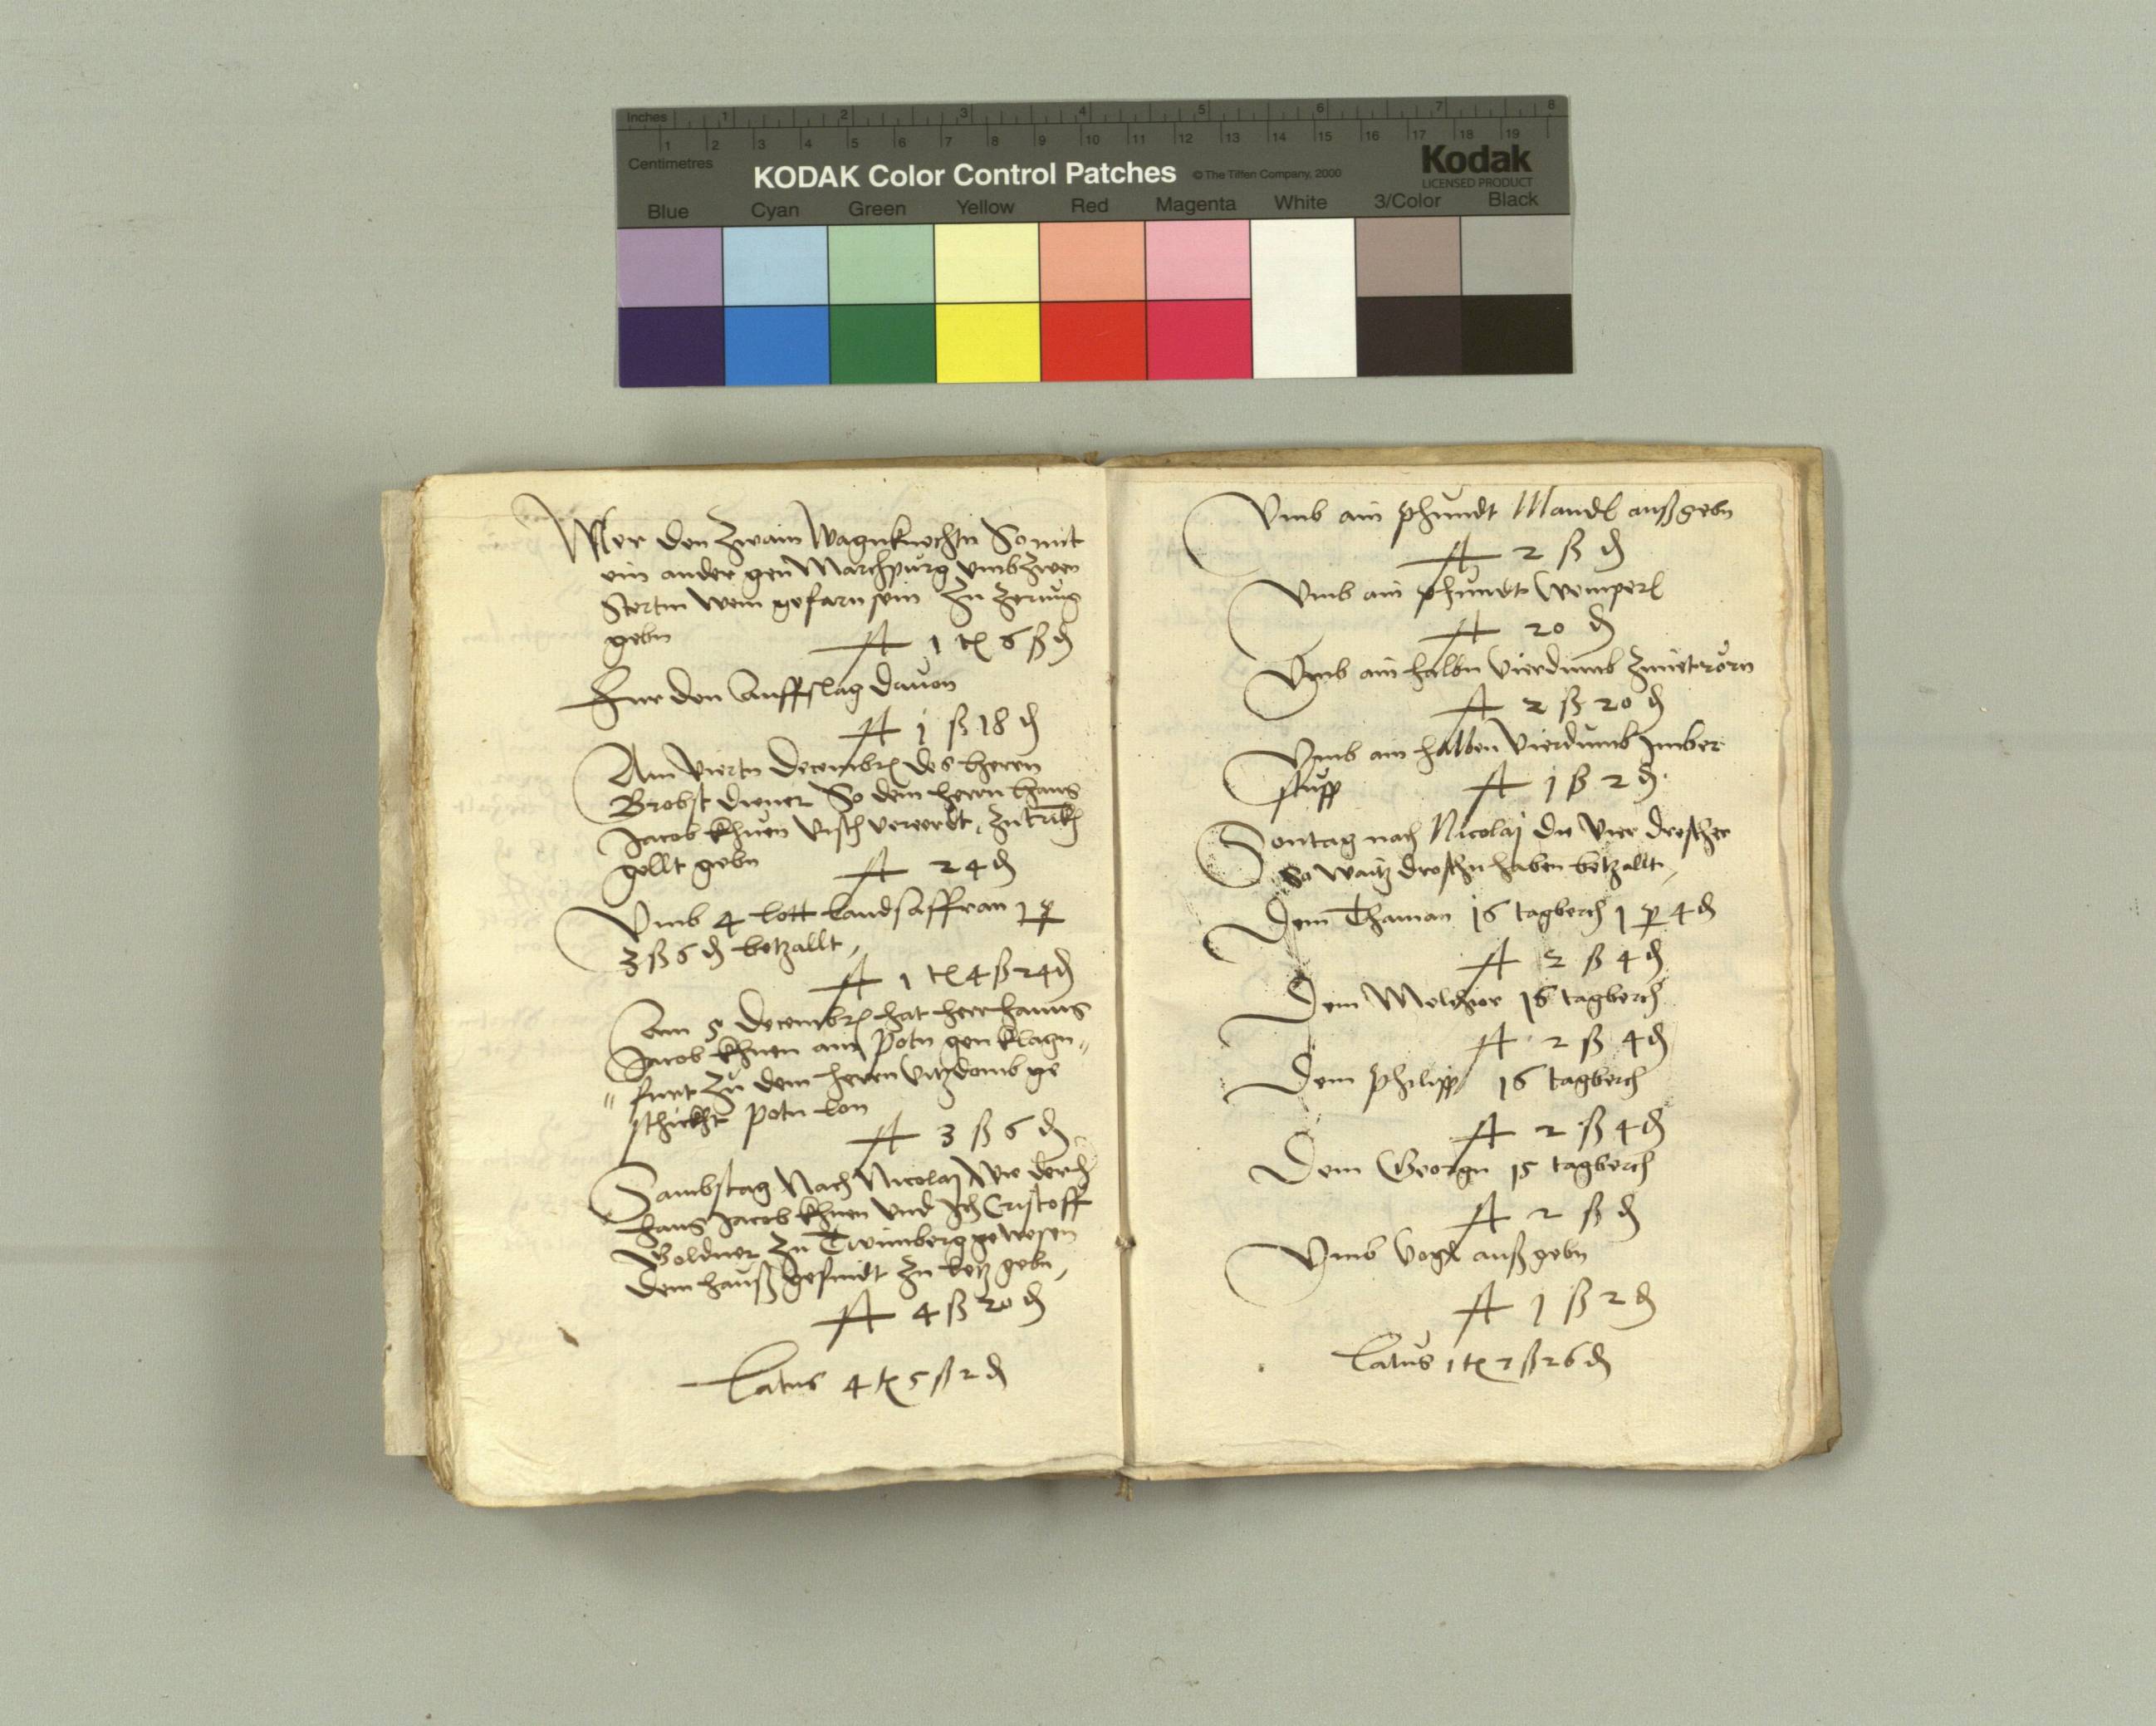 Inches 1 2 3 4 5 6 7 8
1 2 3 4 5 6 7 8 9 10 11 12 13 14 15 16 17 18 19
Centimetres
KODAK Color Control Patches © The Tiffen Company, 2000 Kodak
LICENSED PRODUCT
Blue Cyan Green Yellow Red Magenta White 3/Color Black
den zwain Wagnknechtn So mit
ein ander gen Marchpurg umb zwen
Stertin wein gefarn sein zu zerung
gebn A 1 tl 6 ß ₰
Fur den Auffslag dauon
A 1 ß 18 ₰
Am Viertn Decembr des herrn
Brobst diener So dem herrn hans
Jacob Khuen visch vereerdt, zu trinkh
gellt gebn A 24 ₰
Vmb 4 lott landsaffran 1 p
3 ß 6 ₰ betzallt,
A 1 tl 4 ß 24 ₰
Am 5 Decembr hat herr hanns
Jacob Khuen ain potn gen klagn„
„furt zu dem herrn vitzdomb ge
schickht potn lon
A 3 ß 6 ₰
Sambstag Nach Nicolaj Wie der h
hans Jacob Khuen vnd Ich Cristoff
Goldner zu Twimberg gewesen
dem hauß gesindt zu letz gebn,
A 4 ß 20 ₰
Latus 4 tl 5 ß 2 ₰
Vmb ain phundt Mandl außgebn
A 2 ß ₰
Vmb ain phundt Wemperl
A 20 ₰
Vmb ain halbn Vierdumb Zimetrörn
A 2 ß 20 ₰
Vmb ain halben Vierdumb Imber
stupp A 1 ß 2 ₰
Sontag nach Nicolaj die Vier drescher
So waitz droschn haben betzallt,
Dem Thaman 16 tagberch 1 p 4 ₰
A 2 ß 4 ₰
Dem Melchior 16 tagberch
A 2 ß 4 ₰
Dem philipp 16 tagberch
A 2 ß 4 ₰
Dem Georgn 15 tagberch
A 2 ß ₰
Vmb Vogl außgebn
A 1 ß 2 ₰
Latus 1 tl 7 ß 26 ₰